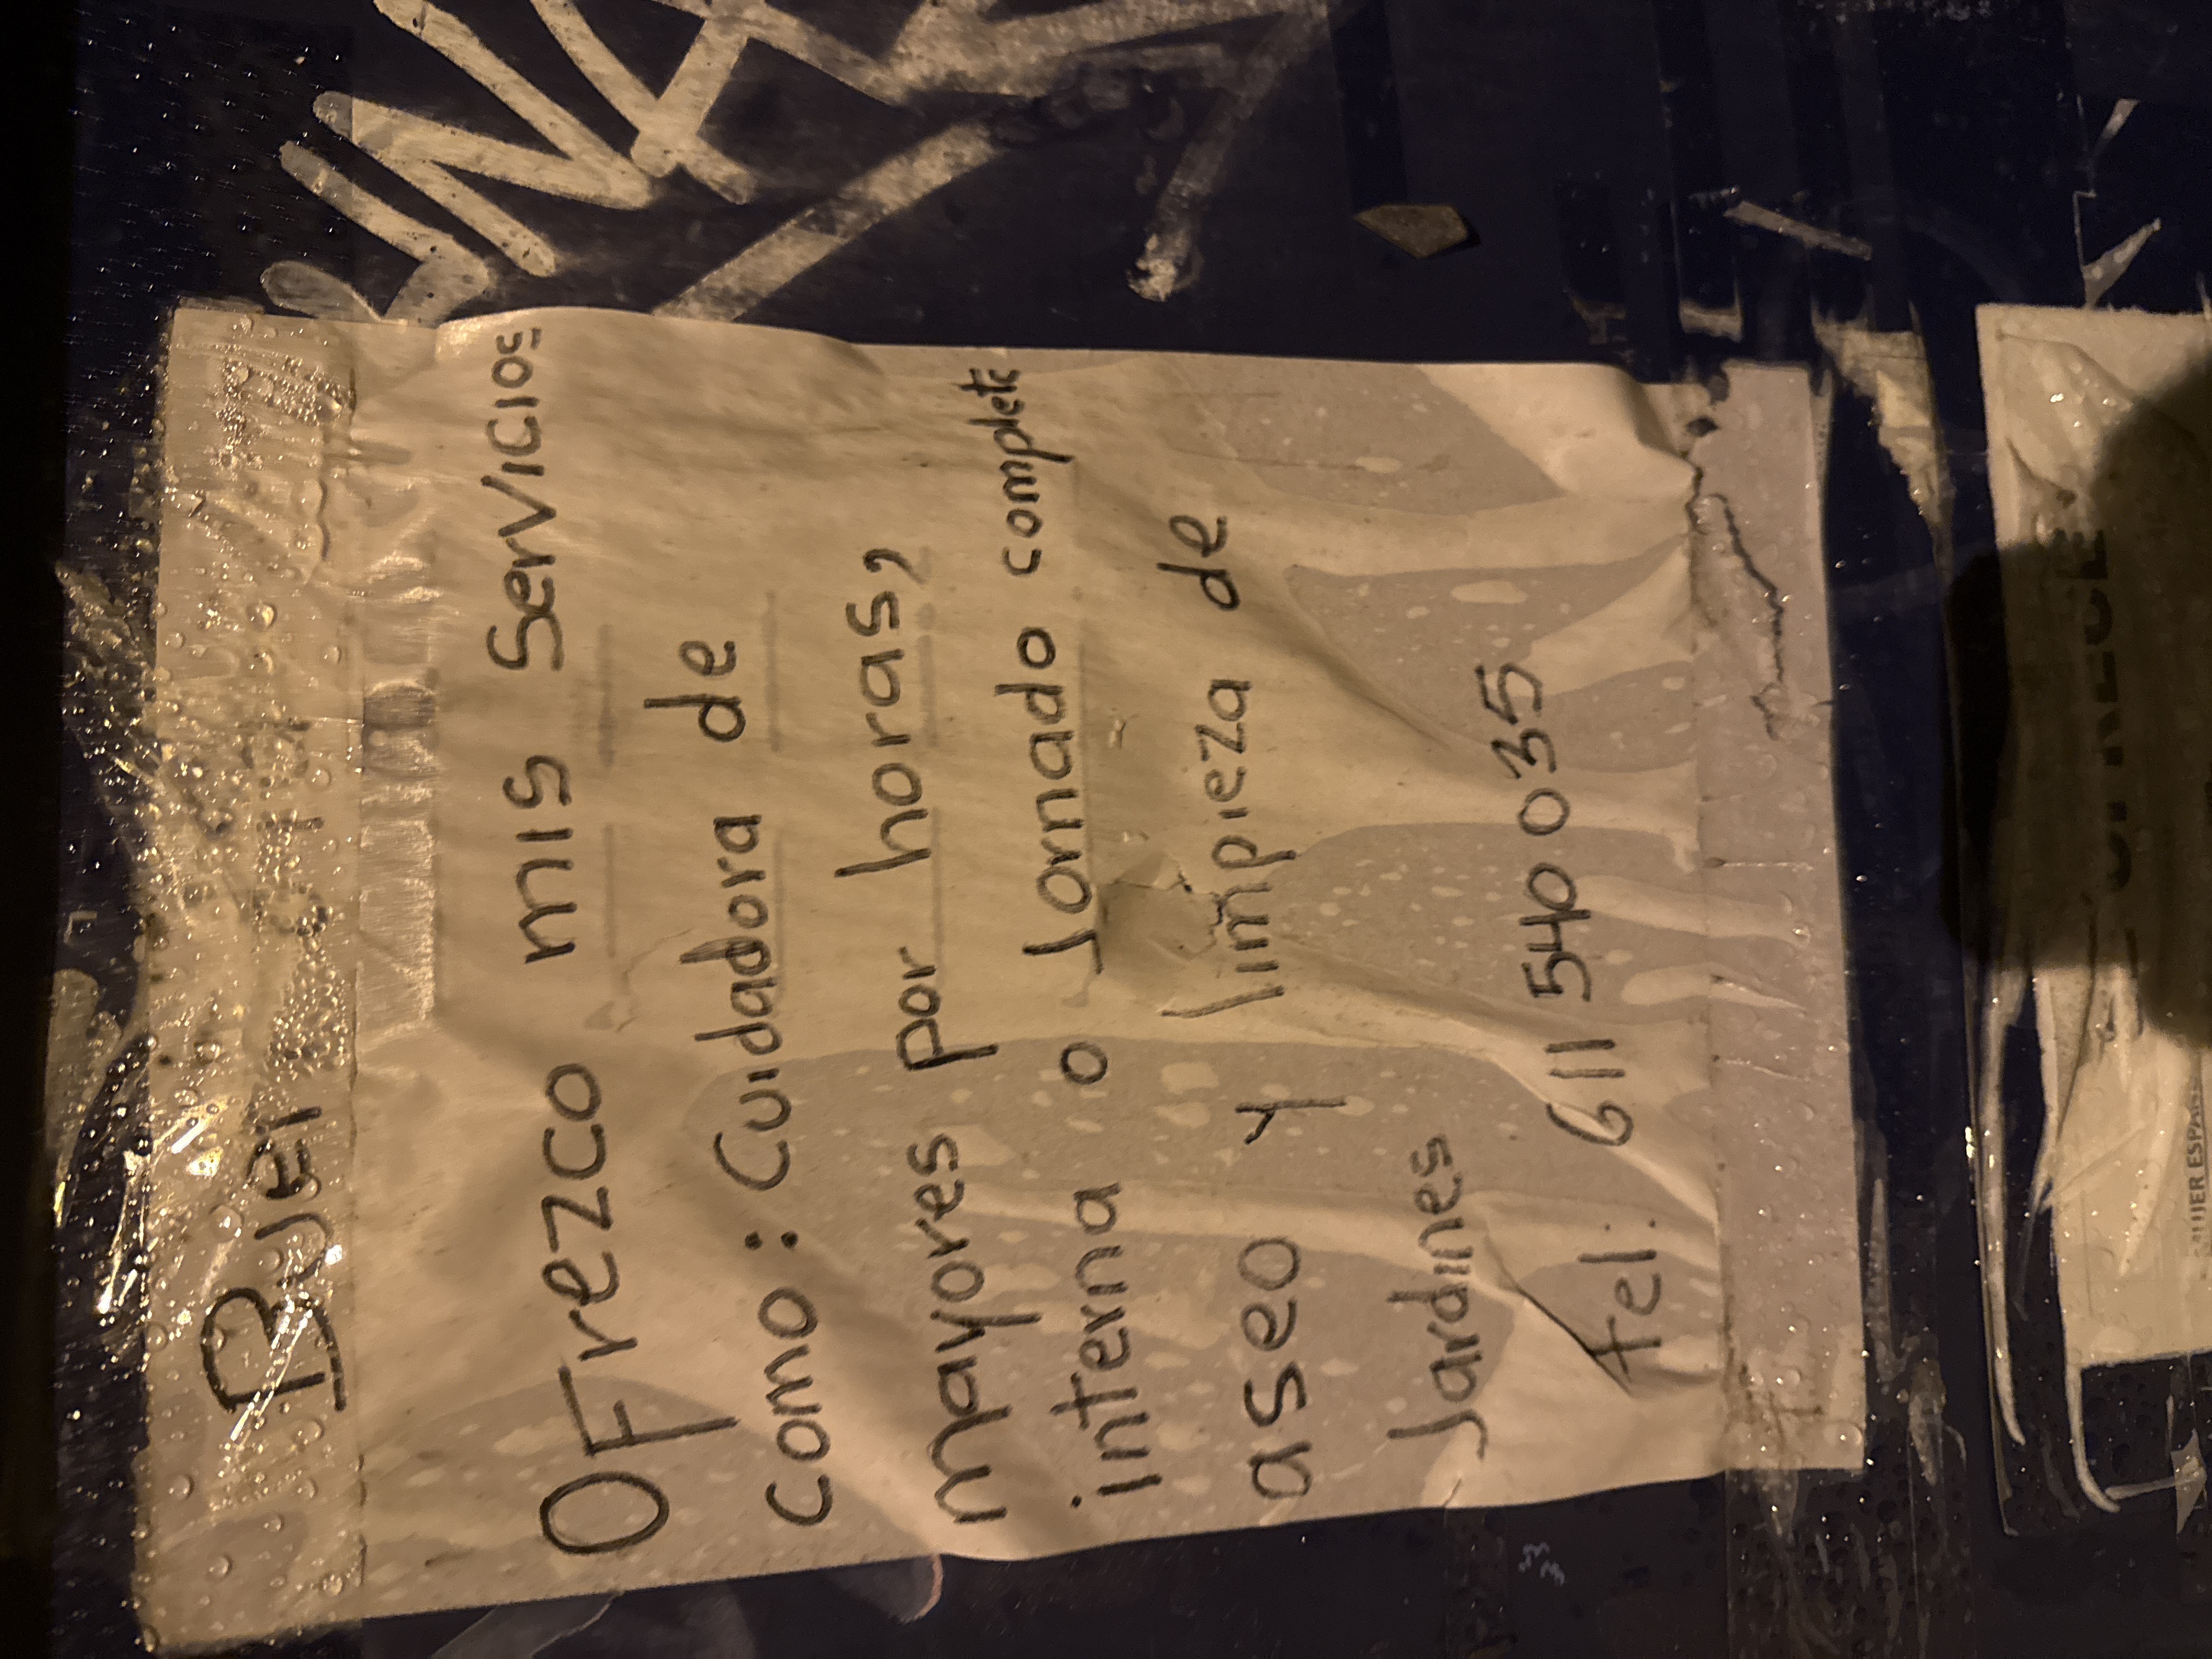 OFrezco mis Servicios
como: Cuidadora de
mayores por horas,
interna o Jornado completa
aseo y limpieza de
Jardines
tel: 611 540 035